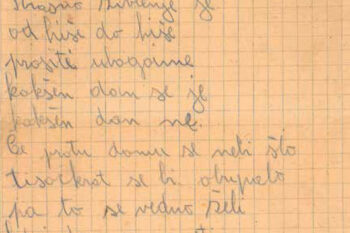 življenje je
od hiše do hiše
prositi ubogaime
kakšen dan se je
kakšen dan ne.
Če proti domu se nebi što
tisočkrat se bi obupalo
pa to se vedno želi